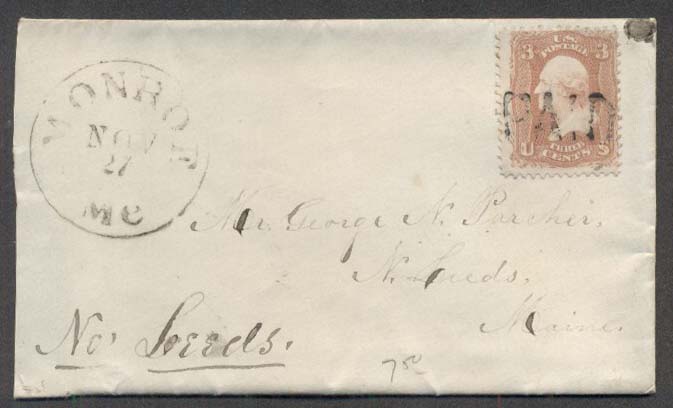 MONROE
NOV
27
Me
3 U.S. 3
POSTAGE
PAID
U THREE S
CENTS
Mr. George N. Parcher,
N. Leeds,
Maine.
No. Leeds.
750